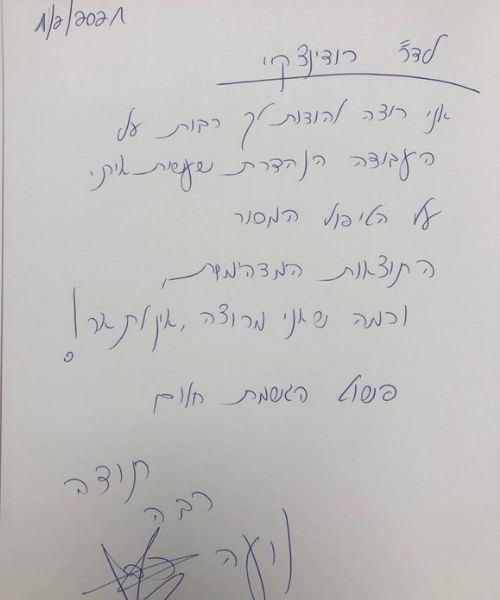 1/2/2021
לדר' רודינצקי
אני רוצה להודות לך רבות על
העבודה הנהדרת שעשית איתי.
על הטיפול המסור
התוצאות המדהימות,
וכמה שאני מרוצה, אין לתאר!
פשוט הגשמת חלום
תודה
רבה